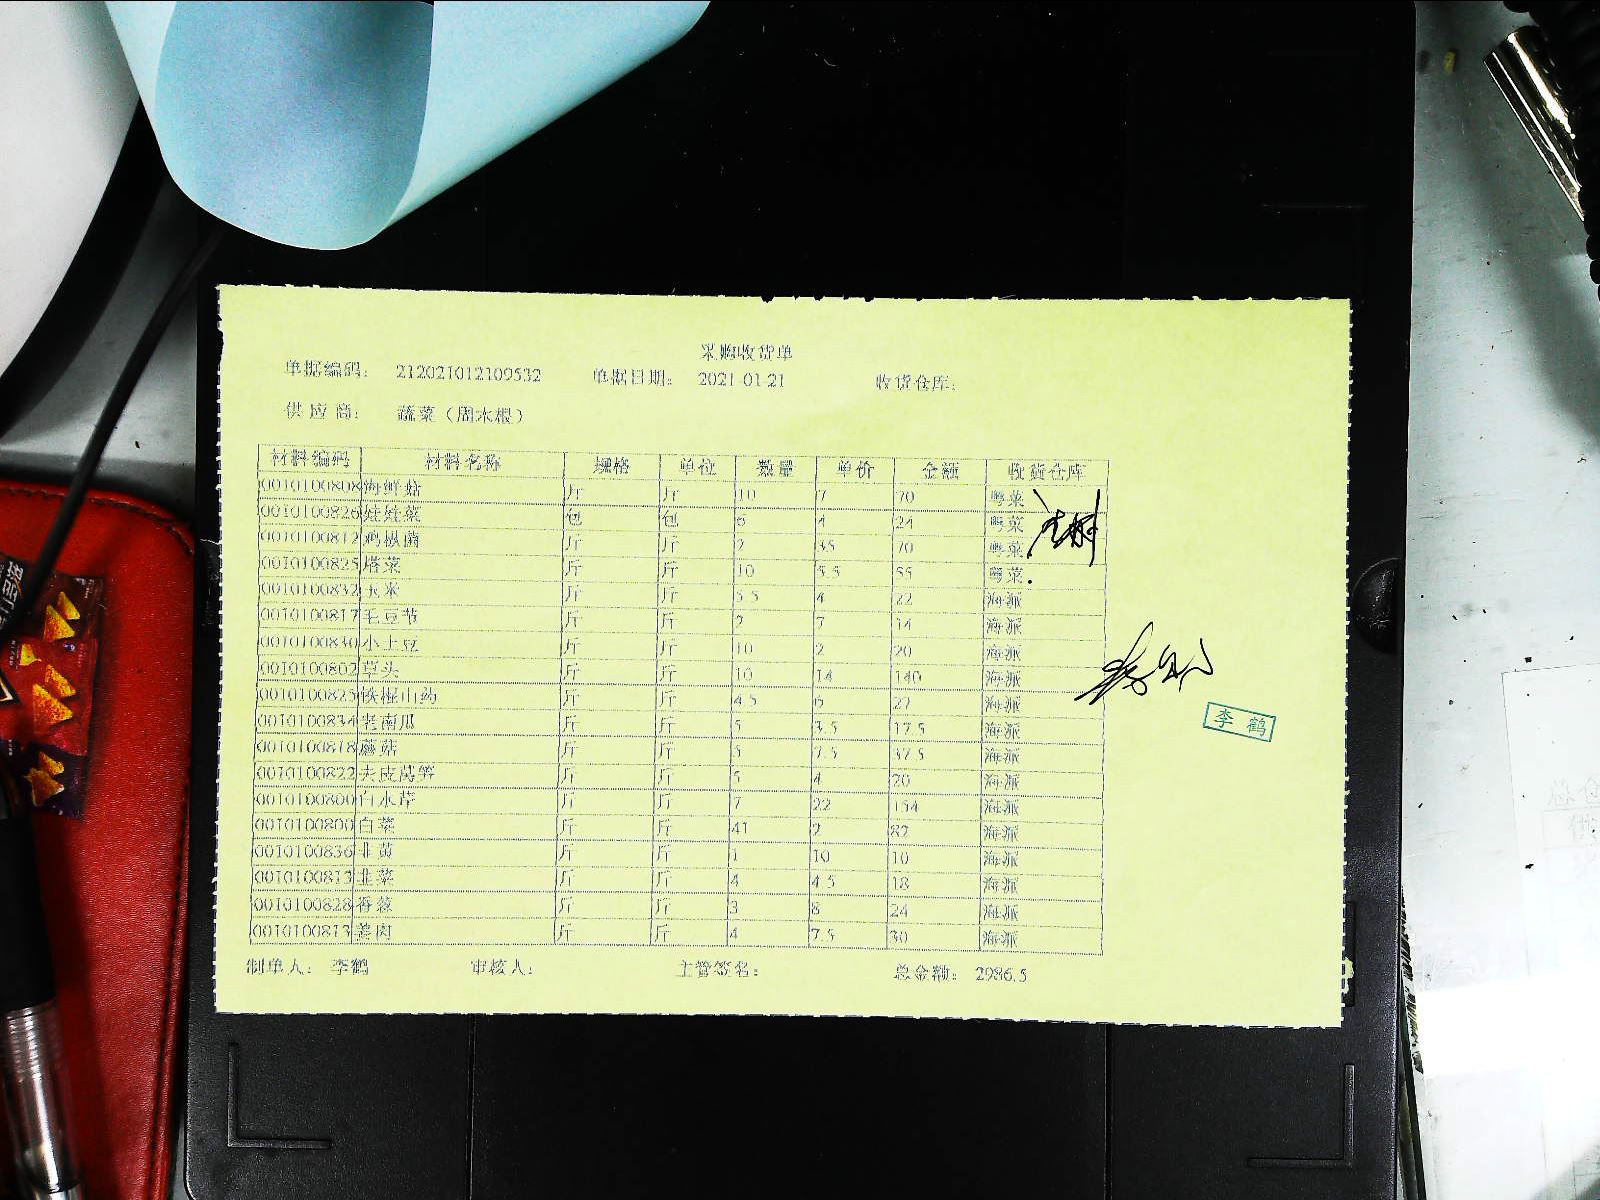 采购收货单
单据编码： 212021012109532 单据日期： 2021-01-21 收货仓库：
供应商： 蔬菜（周水根）
材料编码 材料名称 规格 单位 数量 单价 金额 收货仓库
0010100808 海鲜菇 斤 斤 10 7 70 粤菜
0010100826 娃娃菜 包 包 6 4 24 粤菜
0010100812 鸡枞菌 斤 斤 2 35 70 粤菜
0010100825 塔菜 斤 斤 10 5.5 55 粤菜
0010100832 玉米 斤 斤 5.5 4 22 海派
0010100817 毛豆节 斤 斤 2 7 14 海派
0010100830 小土豆 斤 斤 10 2 20 海派
0010100802 草头 斤 斤 10 14 140 海派
0010100825 铁棍山药 斤 斤 4.5 6 27 海派
0010100834 老南瓜 斤 斤 5 3.5 17.5 海派
0010100818 蘑菇 斤 斤 5 7.5 37.5 海派
0010100822 去皮莴笋 斤 斤 5 4 20 海派
0010100800 白水芹 斤 斤 7 22 154 海派
0010100800 白菜 斤 斤 41 2 82 海派
0010100836 韭黄 斤 斤 1 10 10 海派
0010100813 韭菜 斤 斤 4 4.5 18 海派
0010100828 香菜 斤 斤 3 8 24 海派
0010100813 姜肉 斤 斤 4 7.5 30 海派
李鹤
制单人： 李鹤 审核人： 主管签名： 总金额： 2986.5